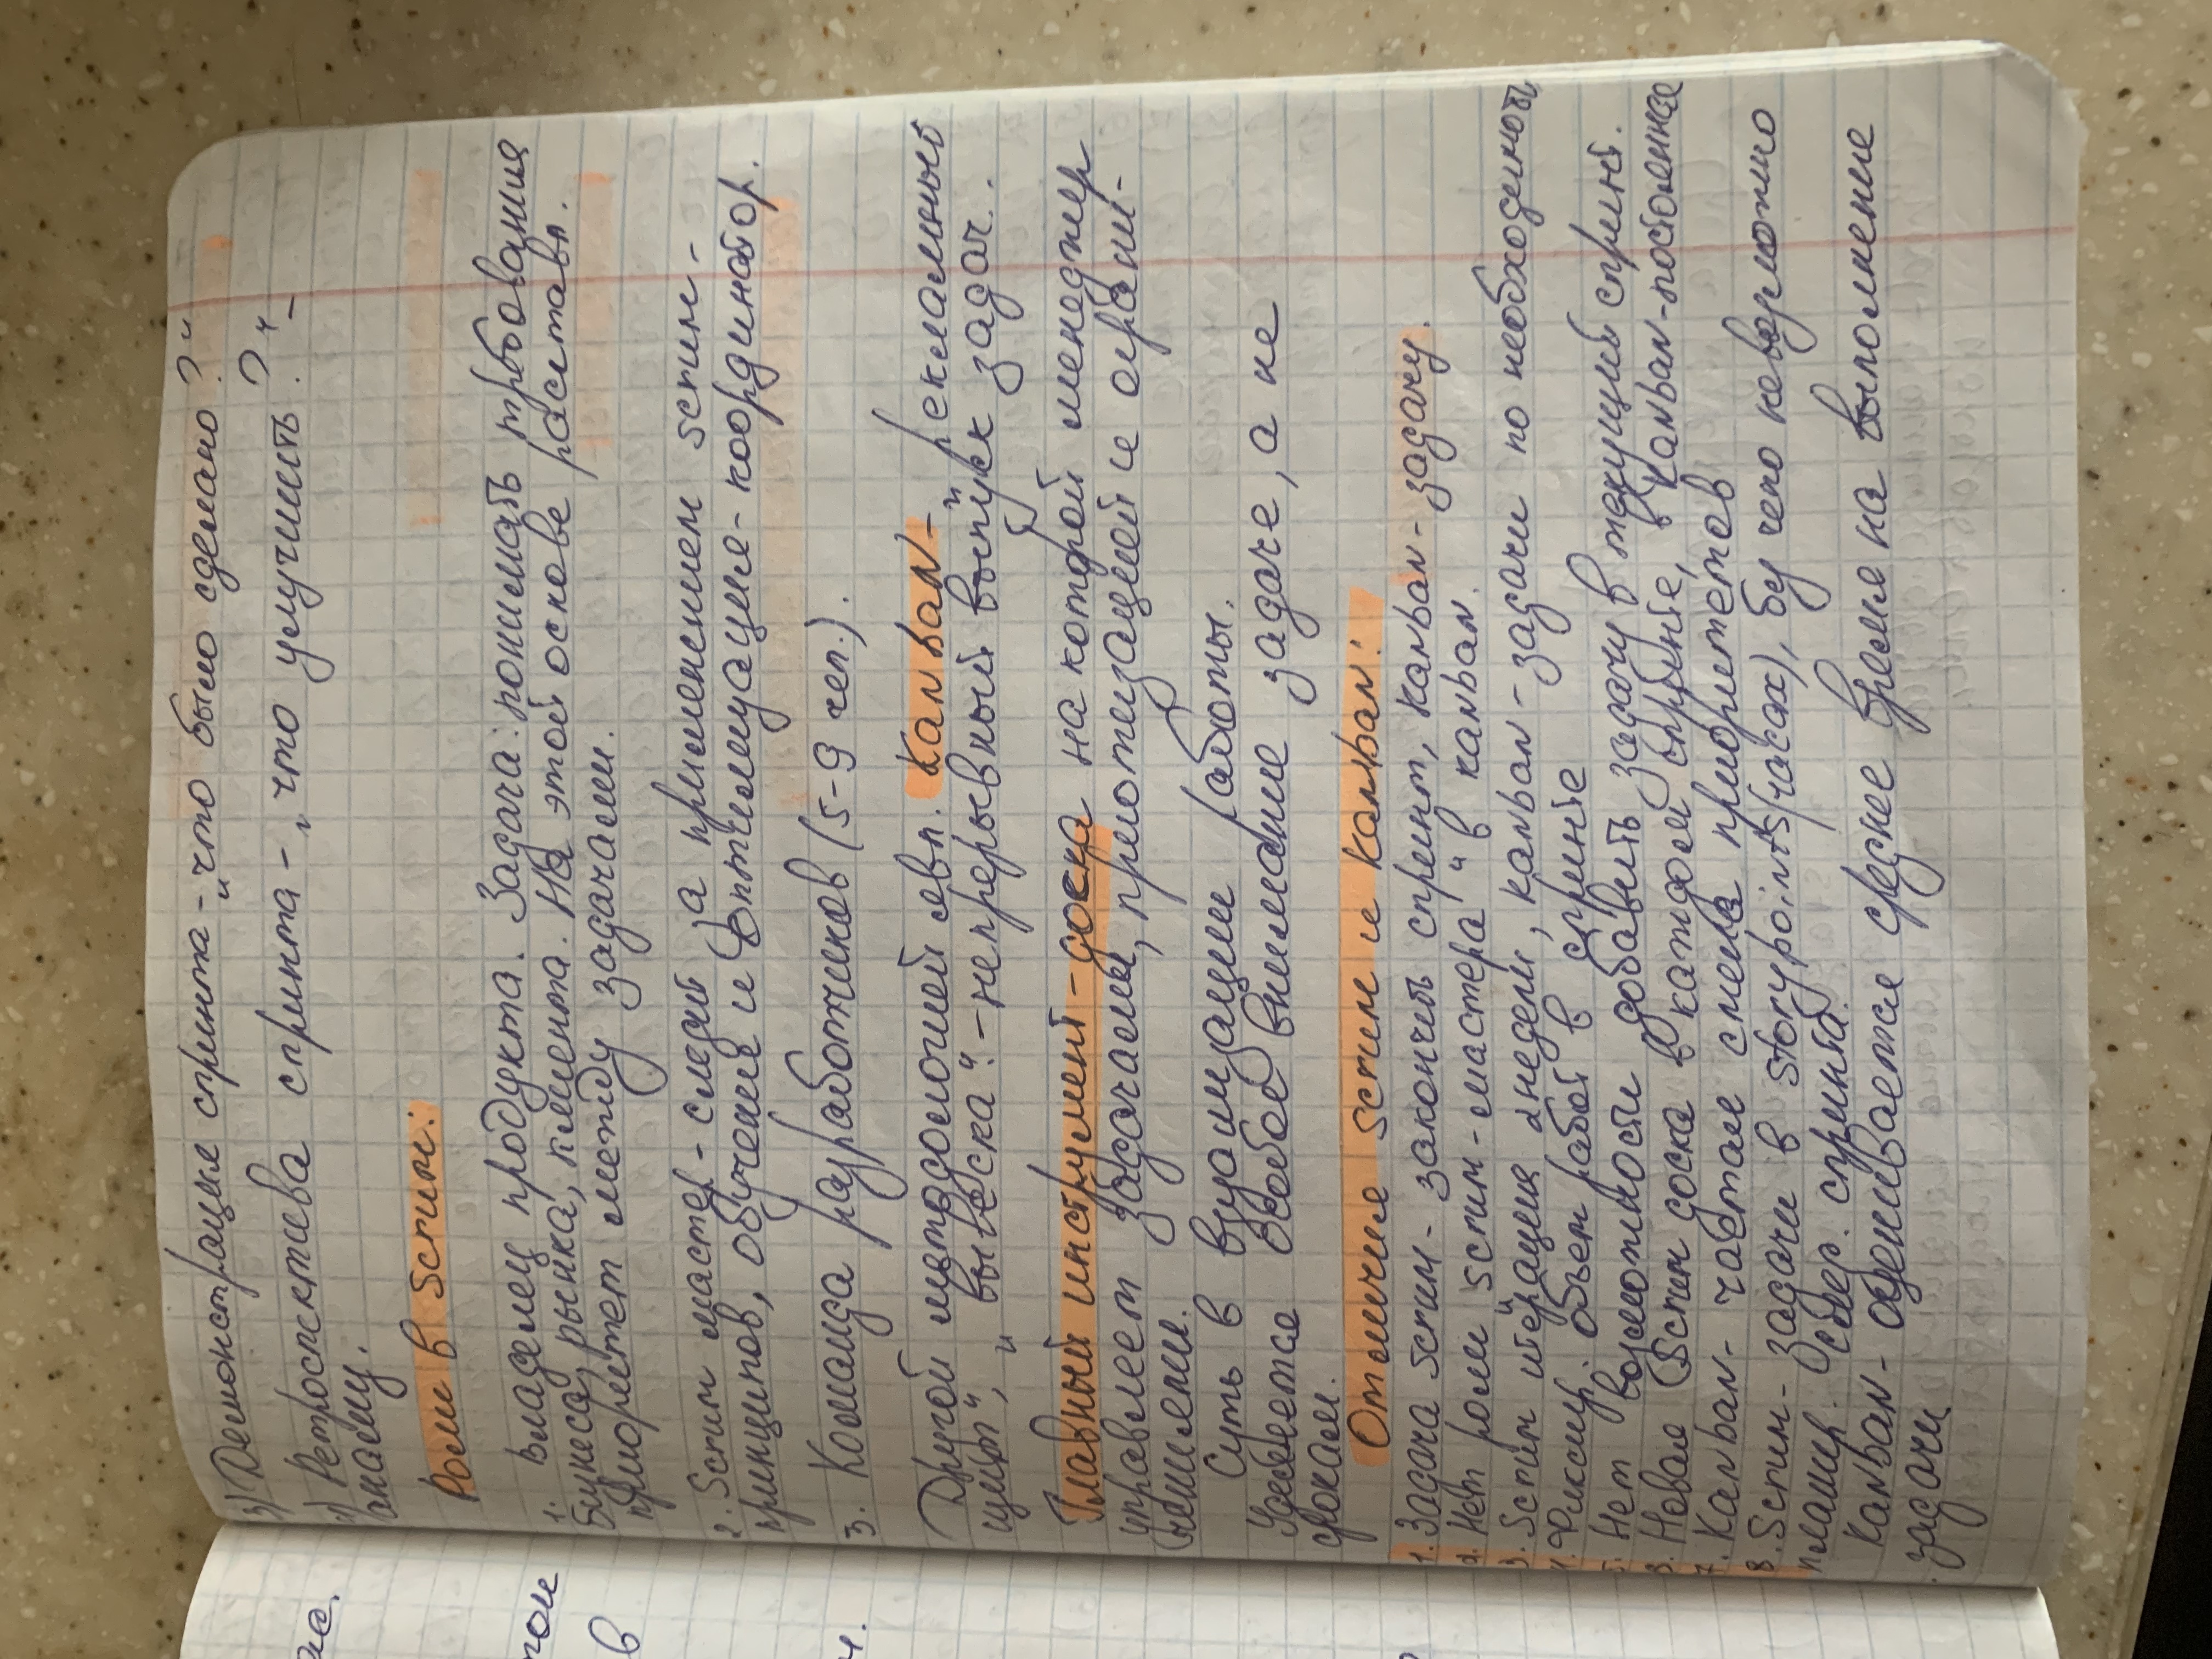 3) Демонстрация спринта - „что было сделано?"
4) Ретроспектива спринта - „что улучшить?" -
анализ.
Роли в Scrum:
1. Владелец продукта. Задача: понимать требования
бизнеса, рынка, клиента. На этой основе расставл.
приоритет между задачами.
2. Scrum мастер - следит за применением scrum-
принципов, обучение и оптимизация - координатор.
3. Команда разработчиков (5-9 чел.).
Другой методологией явл. Kanban - „рекламный
щит", „вывеска". - непрерывный выпуск задач.
Главный инструмент - доска на которой менеджер
управляет задачами, приотизацией и ограни-
чениями.
Суть в визуализации работы.
Уделяется особое внимание задаче, а не
срокам.
Отличия Scrum и Kanban:
1. Задача Scrum - закончить спринт, Kanban - задачу.
2. Нет роли „scrum-мастера" в kanban.
3. Scrum итерация 2 недели, kanban - задачи по необходимости
4. Фиксир. объем работ в спринте
5. Нет возможности добавить задачу в текущий спринт.
6. Новая Scrum доска в каждом спринте, в Kanban - постоянная
7. Kanban - частая смена приоритетов
8. Scrum - задачи в storypoints (часах), без чего невозможно
планир. след. спринта.
Kanban - оценивается среднее время на выполнение
задачи
ас.
в